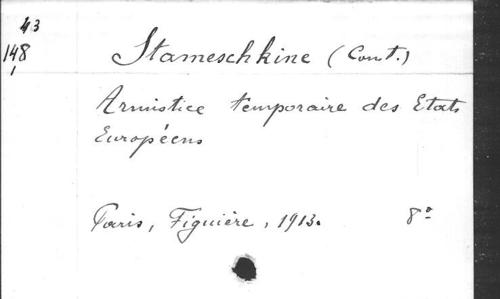 43
148
1
Stameschkine (Const.)
Armistice temporaire des Etats
Européens
Paris, Figuière, 1913. 8°